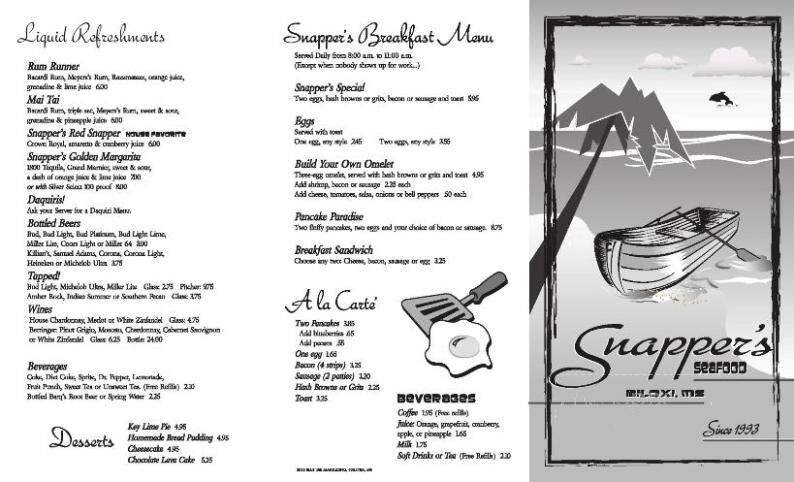 Liquid Refreshments
Rum Runner
Bacardi Rum, Meyer's Rum, Razzmatazz, orange juice,
grenadine & lime juice 6.00
Mai Tai
Bacardi Rum, triple sec, Meyer's Rum, sweet & sour,
grenadine & pineapple juice 6.00
Snapper's Red Snapper HOUSE FAVORITE
Crown Royal, amaretto & cranberry juice 6.00
Snapper's Golden Margarita
1800 Tequila, Grand Marnier, sweet & sour,
a dash of orange juice & lime juice 7.00
or with Silver Select 100 proof 8.00
Daquiris!
Ask your Server for a Daquiri Menu.
Bottled Beers
Bud, Bud Light, Bud Platinum, Bud Light Lime,
Miller Lite, Coors Light or Miller 64 3.00
Killian's, Samuel Adams, Corona, Corona Light,
Heineken or Michelob Ultra 3.75
Tapped!
Bud Light, Michelob Ultra, Miller Lite Glass: 2.75 Pitcher: 9.75
Amber Bock, Indian Summer or Southern Pecan Glass: 3.75
Wines
House Chardonnay, Merlot or White Zinfandel Glass: 4.75
Berringer: Pinot Grigio, Moscato, Chardonnay, Cabernet Sauvignon
or White Zinfandel Glass: 6.25 Bottle: 24.00
Beverages
Coke, Diet Coke, Sprite, Dr. Pepper, Lemonade,
Fruit Punch, Sweet Tea or Unsweet Tea. (Free Refills) 2.20
Bottled Barq's Root Beer or Spring Water 2.25
Desserts
Key Lime Pie 4.95
Homemade Bread Pudding 4.95
Cheesecake 4.95
Chocolate Lava Cake 5.25
Snapper's Breakfast Menu
Served Daily from 8:00 a.m. to 11:00 a.m.
(Except when nobody shows up for work...)
Snapper's Special
Two eggs, hash browns or grits, bacon or sausage and toast 5.95
Eggs
Served with toast
One egg, any style 2.45 Two eggs, any style 3.55
Build Your Own Omelet
Three-egg omelet, served with hash browns or grits and toast 4.95
Add shrimp, bacon or sausage 2.25 each
Add cheese, tomatoes, salsa, onions or bell peppers .50 each
Pancake Paradise
Two fluffy pancakes, two eggs and your choice of bacon or sausage. 8.75
Breakfast Sandwich
Choose any two: Cheese, bacon, sausage or egg 3.25
A la Carté
Two Pancakes 3.85
Add blueberries .65
Add pecans .55
One egg 1.65
Bacon (4 strips) 3.25
Sausage (2 patties) 3.20
Hash Browns or Grits 2.25
Toast 3.25
BEVERAGES
Coffee 1.95 (Free refills)
Juice: Orange, grapefruit, cranberry,
apple, or pineapple 1.65
Milk 1.75
Soft Drinks or Tea (Free Refills) 2.20
Snapper's
SEAFOOD
BILOXI, MS
Since 1993